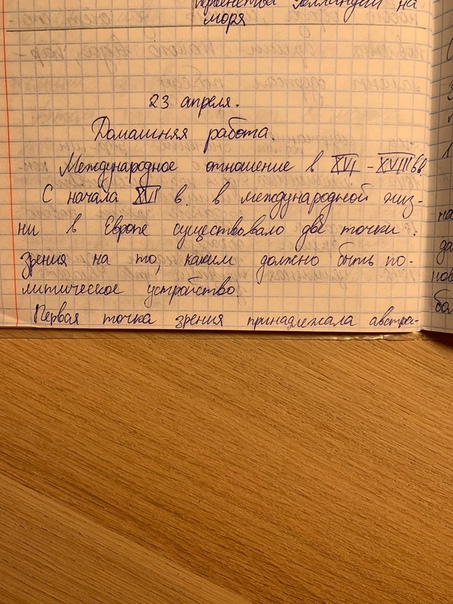 Голландии на
моря
23 апреля.
Домашняя работа.
Международное отношение в XVI - XVIII вв
С начала XVI в. в международной жиз-
ни в Европе существовало две точки
зрения на то, каким должно быть по-
литическое устройство.
Первая точка зрения принадлежала австра-